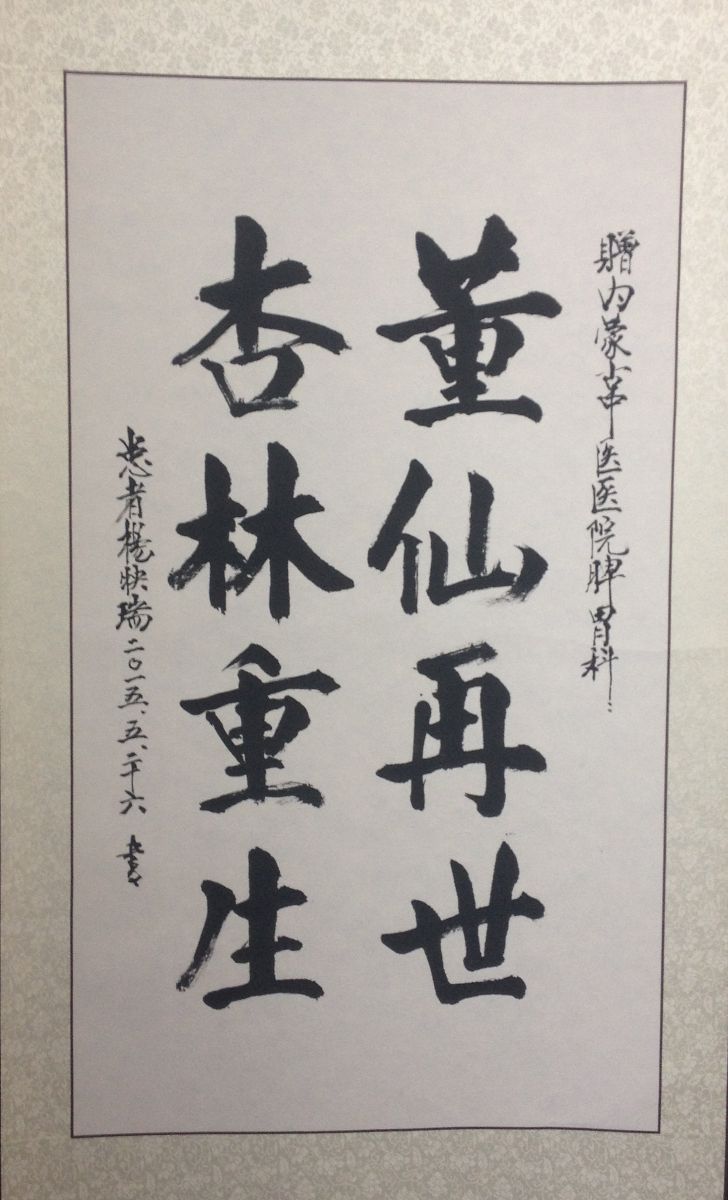 赠内蒙古中医医院脾胃科
董仙再世
杏林重生
患者杨快瑞二〇一五、五、二十六 书